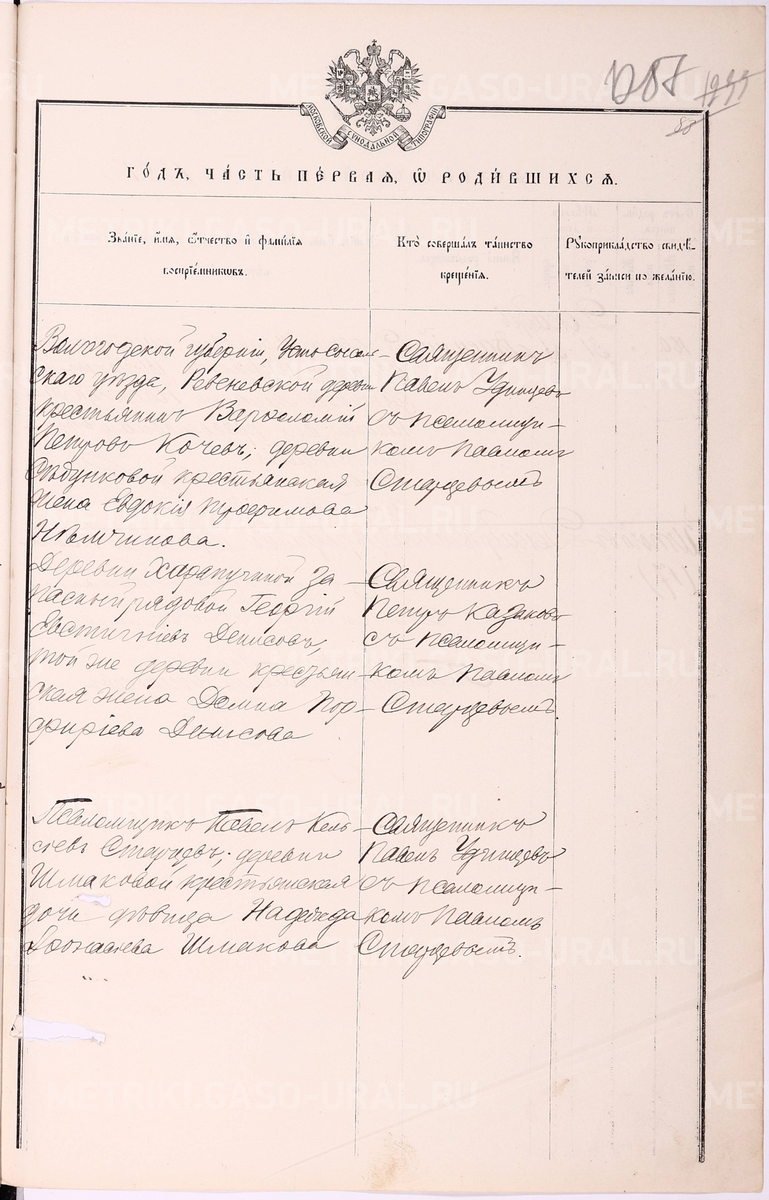 МОСКОВСКОЙ СѴНОДАЛЬНОЙ ТИПОГРАФІИ
1255
88
ГО́ДЪ, ЧА́СТЬ ПЕ́РВАЯ, Ѡ҆ РОДИ́ВШИХСЯ.
Зва́нїе, и҆́мѧ, ѻ҆́тчество и҆ фами́лїѧ
воспрїе́мниковъ.
Кто̀ соверша́лъ та́инство
креще́нїѧ.
Рꙋкоприкла́дство свидѣ́-
телей за́писи по жела́нїю.
Вологодской губерніи, Устьсысоль-
скаго уѣзда, деревни
крестьянинъ Варѳоломій
Петровъ Кочевъ; деревни
крестьянская
жена Евдокія Трофимова
Нѣмчинова.
Священникъ
Павелъ Удинцевъ
съ псаломщи-
комъ Павломъ
Старцевымъ
Деревни Харапучиной За-
пасный рядовой Георгій
Евстигніевъ Денисовъ,
той же деревни крестьян-
ская жена Домна Пор-
фиріева Денисова
Священникъ
Петръ Казаковъ
съ псаломщи-
комъ Павломъ
Старцевымъ.
Псаломщикъ Павелъ Кель-
сіевъ Старцевъ; деревни
Шмаковой крестьянская
дочь дѣвица Надежда
Аѳонасіева Шмакова
Священникъ
Павелъ Удинцевъ
съ псаломщи-
комъ Павломъ
Старцевымъ.
METRIKI.GASO-URAL.RU